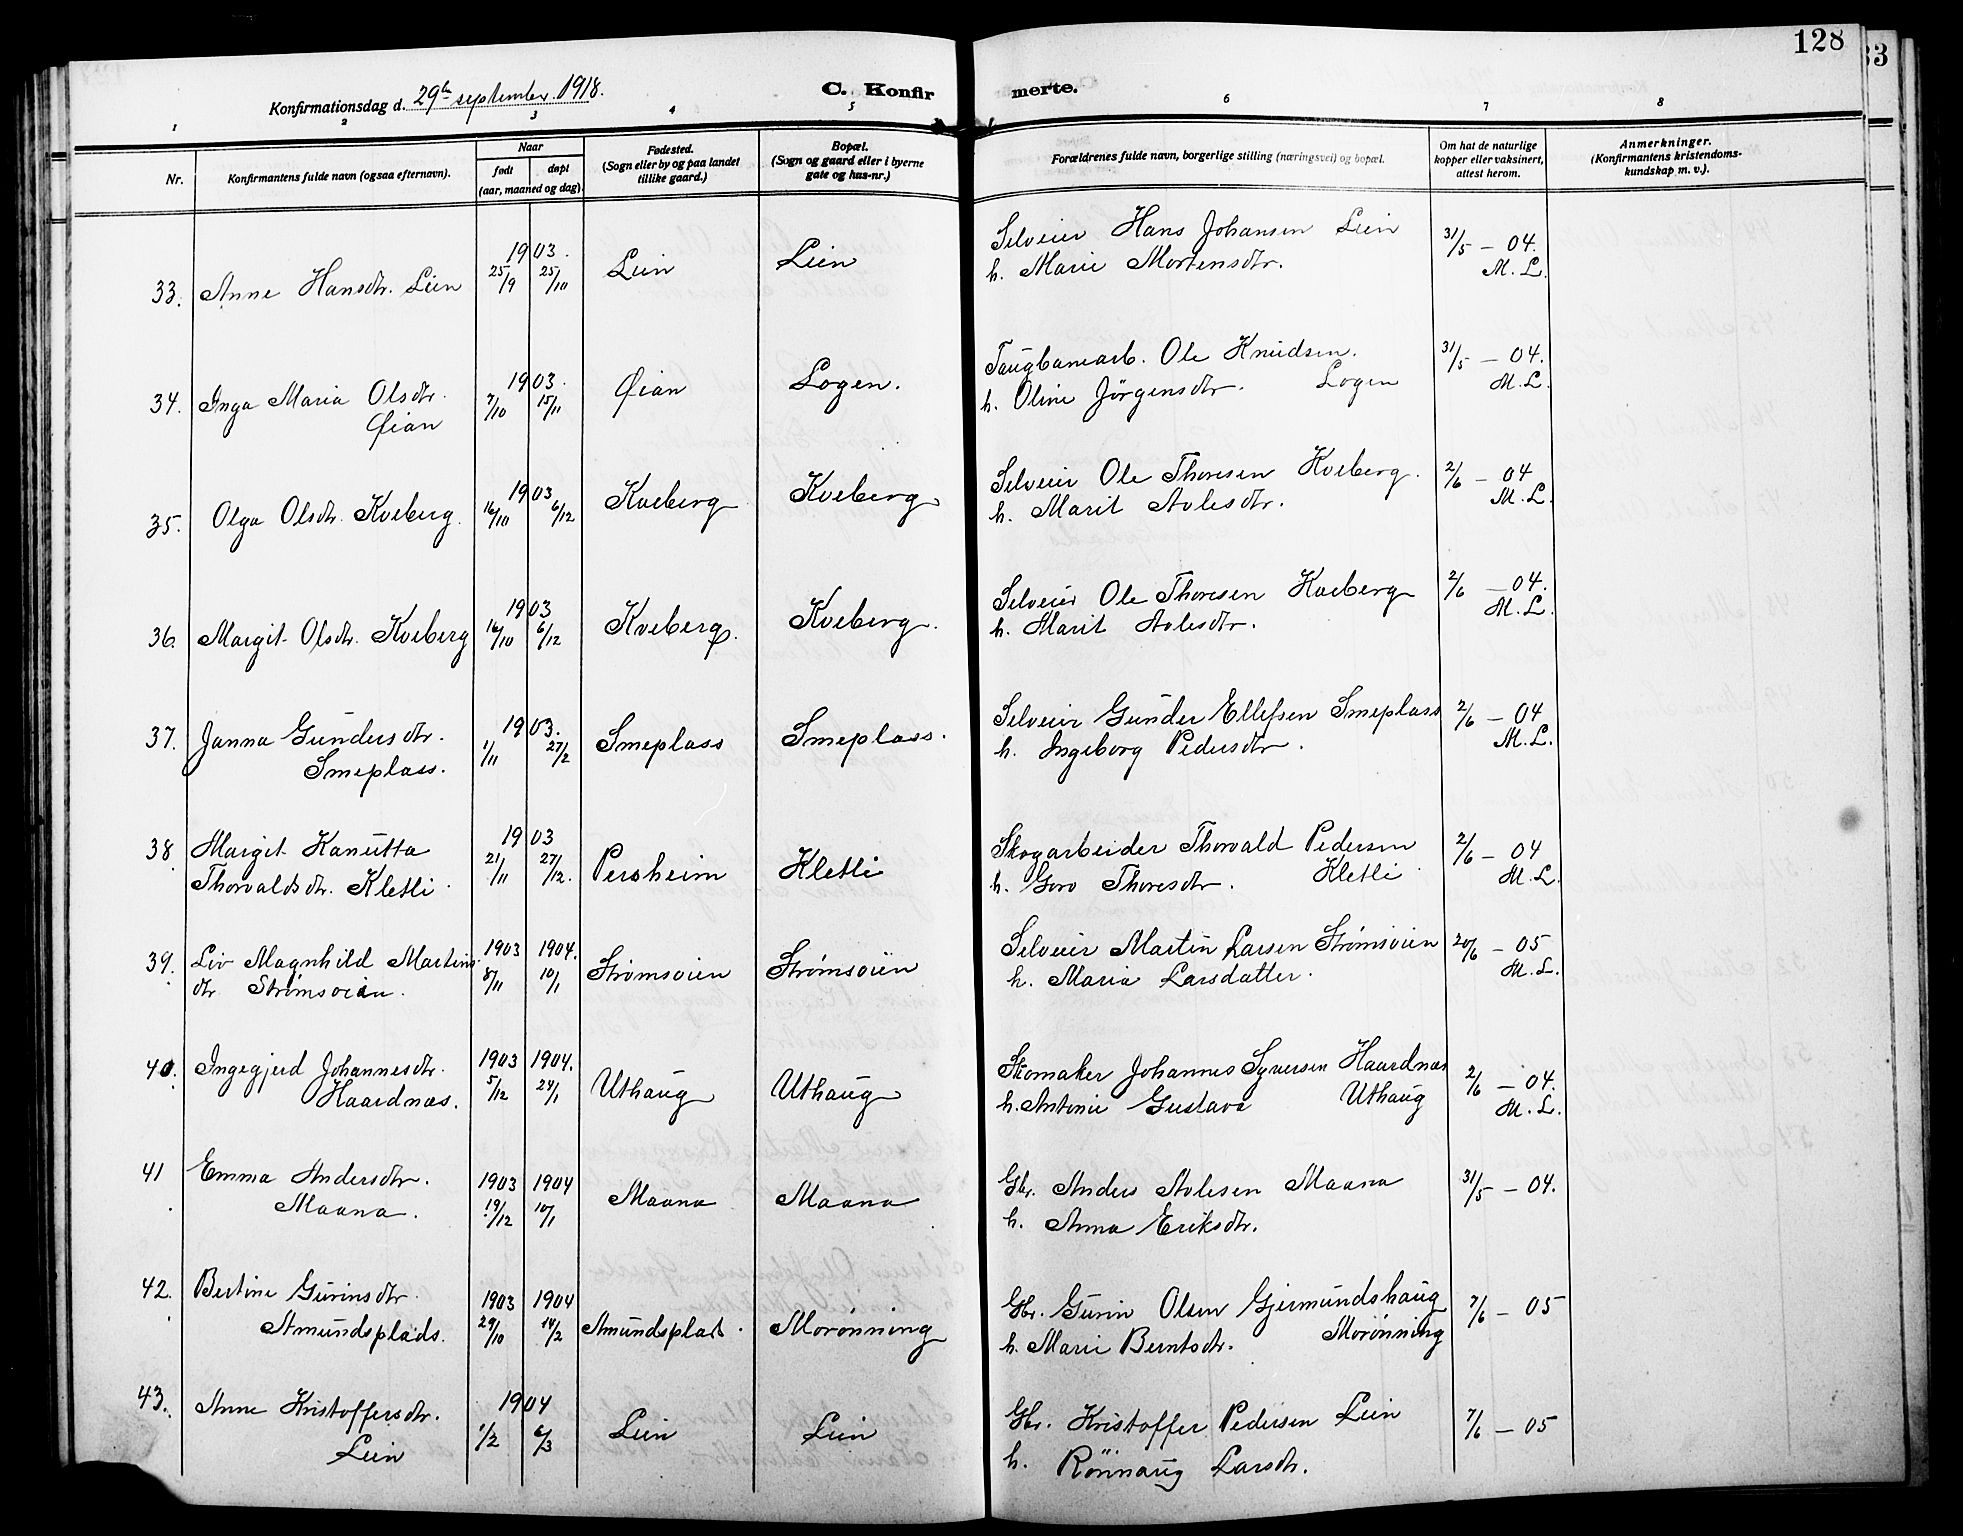 128
33
Konfirmationsdag d. 29de september 1918.
C. Konfir merte.
1 2 3 4 5 6 7 8
Nr.
Konfirmantens fulde navn (ogsaa efternavn).
Naar
født døpt
(aar, maaned og dag).
Fødested.
(Sogn eller by og paa landet
tillike gaard.)
Bopæl.
(Sogn og gaard eller i byerne
gate og hus-nr.)
Forældrenes fulde navn, borgerlige stilling (næringsvei) og bopæl.
Om hat de naturlige
kopper eller vaksinert,
attest herom.
Anmerkninger.
(Konfirmantens kristendoms-
kundskap m. v.).
33. Anne Hansdtr. Lien
1903.
25/9 25/10
Lien
Lien
Selveier Hans Johansen Lien
h. Marie Mortensdtr.
31/5 – 04.
M. L.
34. Inga Maria Olsdtr.
Øian
1903.
7/10 15/11
Øian
Logen.
Taugbanearb. Ole Knudsen.
h. Oline Jörgensdtr. Logen
31/5 – 04.
M. L.
35. Olga Olsdtr. Kveberg.
1903
16/10 6/12
Kveberg
Kveberg
Selveier Ole Thoresen Kveberg.
h. Marit Avlesdtr.
2/6 – 04
M. L.
36. Margit Olsdtr. Kveberg
1903
16/10 6/12
Kveberg.
Kveberg.
Selveier Ole Thoresen Kveberg
h. Marit Avlesdtr.
2/6 – 04.
M. L.
37. Janna Gundersdtr.
Smeplass.
1903.
1/11 27/2
Smeplass
Smeplass.
Selveier Gunder Ellefsen Smeplass
h. Ingeborg Pedersdtr.
2/6 – 04
M. L.
38 Margit Kanutta
Thorvaldsdtr. Kletli.
1903
21/11 27/12.
Persheim
Kletli
Skogarbeider Thorvald Pedersen
h. Goro Thoresdtr. Kletli
2/6 – 04
M. L.
39. Liv Magnhild Martins
dtr. Strømsøien.
1903 1904.
8/11 10/1
Strømsøien
Strømsøien
Selveier Martin Larsen Strømsøien
h. Maria Larsdatter.
20/6 – 05
M. L.
40. Ingegjerd Johannesdtr.
Haardnæs.
1903 1904.
5/12 24/1
Uthaug
Uthaug
Skomaker Johannes Syversen Haardnæs
h. Antonie Gustava Uthaug
2/6 – 04.
M. L.
41. Emma Andersdtr.
Maana.
1903 1904
19/12 10/1
Maana
Maana
Gbr. Anders Avlesen Maana
h. Anna Eriksdtr.
31/5 – 04.
42. Bertine Gurinsdtr.
Amundsplads.
1903 1904
29/10 14/2
Amundsplads.
Morønning
Gbr. Gurin Olsen Gjermundshaug
h. Marie Berntsdtr. Morønning
7/6 – 05
43. Anne Kristoffersdtr.
Lien
1904
1/2 6/3
Lien
Lien
Gbr. Kristoffer Pedersen Lien
h. Rönnaug Larsdtr.
7/6 – 05